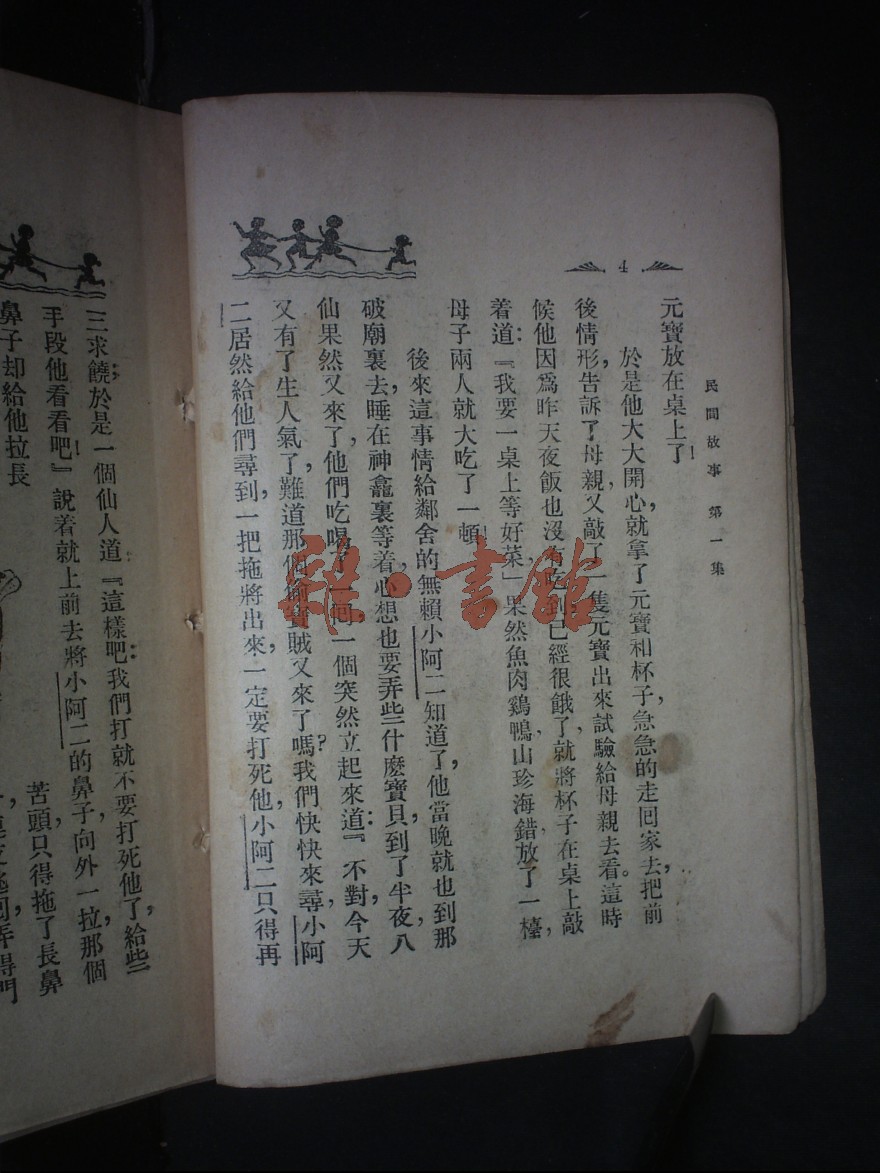 民間故事第一集
4
元寶放在桌上了！
於是他大大開心，就拿了元寶和杯子，急急的走回家去，把前
後情形告訴了母親，又敲了一隻元寶出來試驗給母親去看。這時
候他因爲昨天夜飯也沒有吃到，已經很餓了，就將杯子在桌上敲
着道：『我要一桌上等好菜！』果然魚肉鷄鴨山珍海錯放了一檯，
母子兩人就大吃了一頓！
後來這事情給鄰舍的無賴小阿二知道了，他當晚就也到那
破廟裏去，睡在神龕裏等着，心想也要弄些什麼寶貝，到了半夜，八
仙果然又來了，他們吃喝了一回，一個突然立起來道：『不對，今天
又有了生人氣了，難道那個偷寶賊又來了嗎？我們快快來尋，小阿
二居然給他們尋到，一把拖將出來，一定要打死他，小阿二只得再
三求饒，於是一個仙人道：『這樣吧，我們打就不要打死他了，給些
手段他看看吧！』說着就上前去將小阿二的鼻子，向外一拉，那個
鼻子却給他拉長
苦頭，只得拖了長鼻
雜·書館